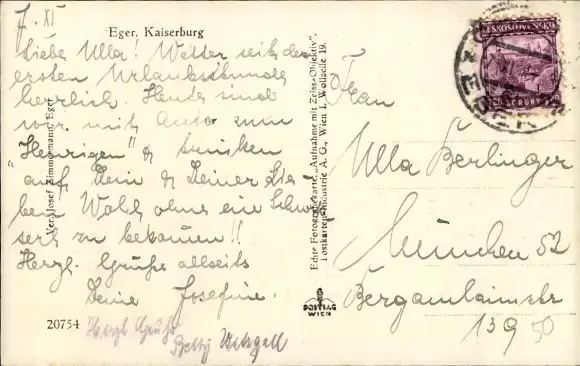 7. XI
Eger, Kaiserburg
Liebe Ulla! Wetter seit der
ersten Urlaubsstunde
herrlich. Heute sind
wir mit Auto zum
"Heurigen" & trinken
auf Dein & Deiner Lie
ben Wohl, ohne ein Schwi
zu bekommen!!
Herzl. Grüße allseits
Deine Josefine.
Herzl Grüße
Betty
20754
Verl. Josef Zimmermann, Eger
Echte Fotografiekarte. „Aufnahme mit Zeiss-Objektiv".
Postkarten-Industrie A. G., Wien I, Wollzeile 19.
POSTIAG
WIEN
ČESKOSLOVENSKO
EGER
Frau
Ulla Berlinger
München 52
Bergamlaimstr
139
50